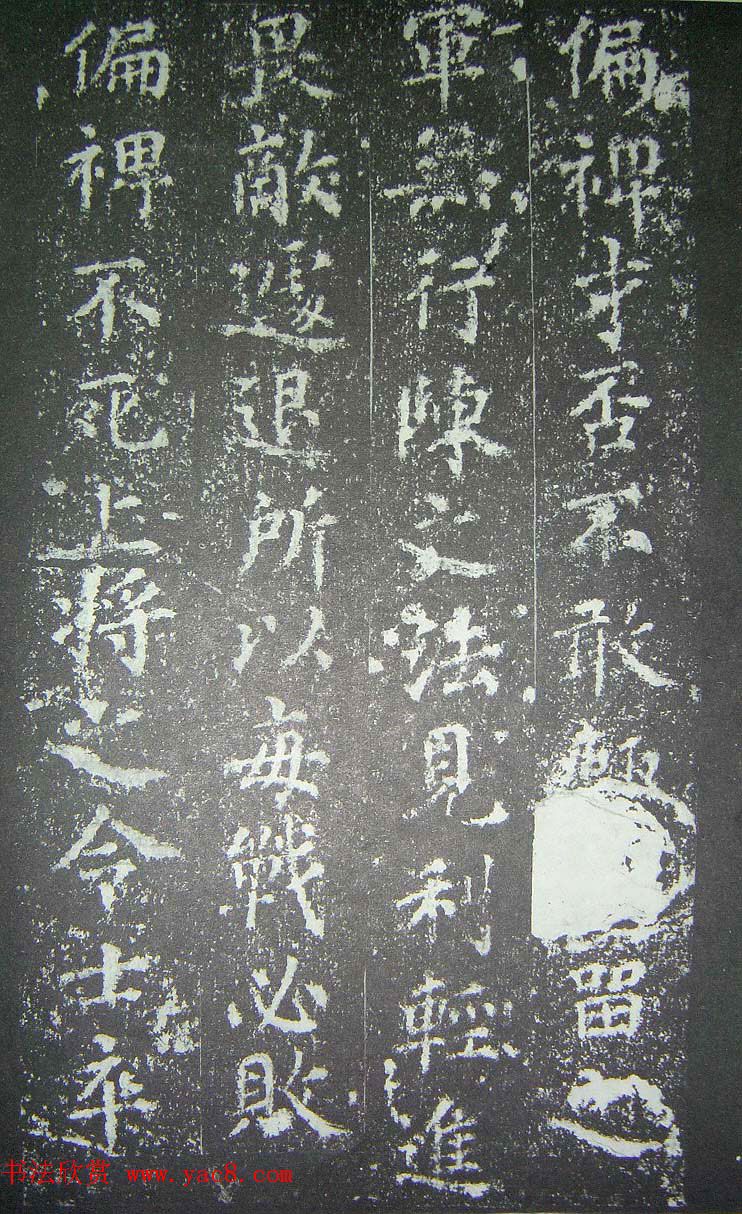 偏裨才否不敢輕留也
軍無行陣之法見利輕進
畏敵遽退所以每戰必敗
偏裨不死上將之令士卒
书法欣赏 www.yac8.com